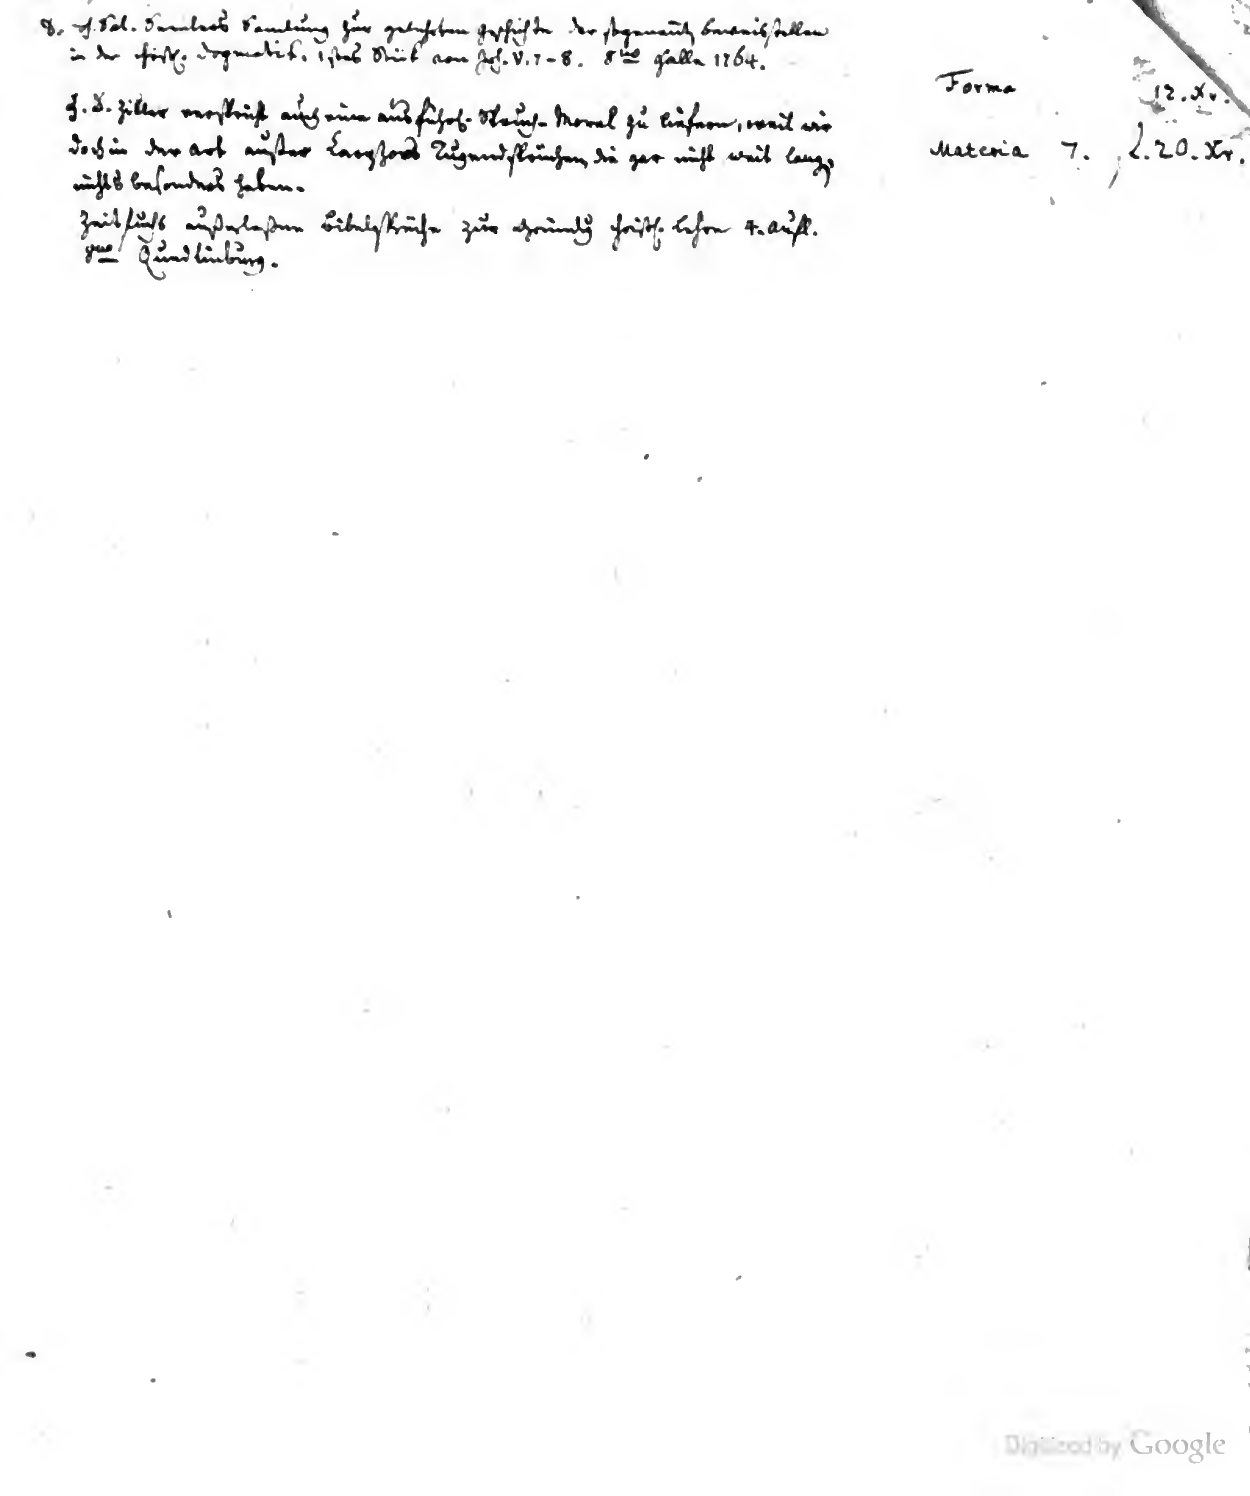 D. J. Sal. Semlers Samlung zur gelehrten Geschichte der sogenañt. Beweisstellen
in der christl. Dogmatik. 1stes Stük von Joh. V. 7-8. 8vo Halle 1764.
H. D. Ziller verspricht auch eine ausführl. Spruch-Moral zu liefern, weil wir
doch in der Art außer Tugendsprüchen, die gar nicht weit lang,
nichts besonders haben.
Zeitfuchs außerlesene Bibelsprüche zur Gründung christl. Lehre 4. Aufl.
8vo Quedlinburg.
Forma 12. Xr.
Materia 7. 2.20. Xr.
Digitized by Google